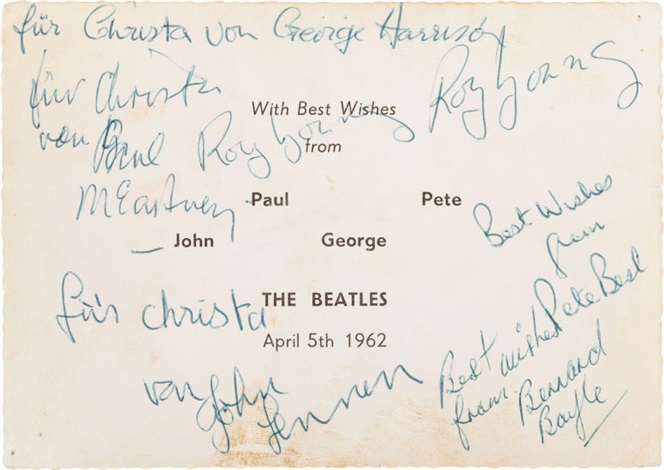 für Christa von George Harrison
für Christa
von Paul
McCartney
Roy Young
Roy Young
With Best Wishes
from
Paul Pete
John George
THE BEATLES
April 5th 1962
Best Wishes
from
Pete Best
für Christa
von John
Lennon
Best wishes
from
Bernard
Boyle